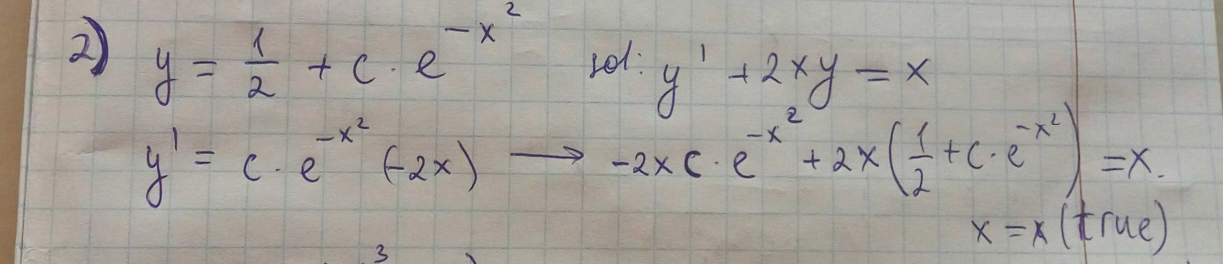 2) y = 1/2 + c · e^{-x^2} sol: y' + 2xy = x
y' = c · e^{-x^2} (-2x) → -2xc · e^{-x^2} + 2x(1/2 + c · e^{-x^2}) = x.
x = x (true)
3